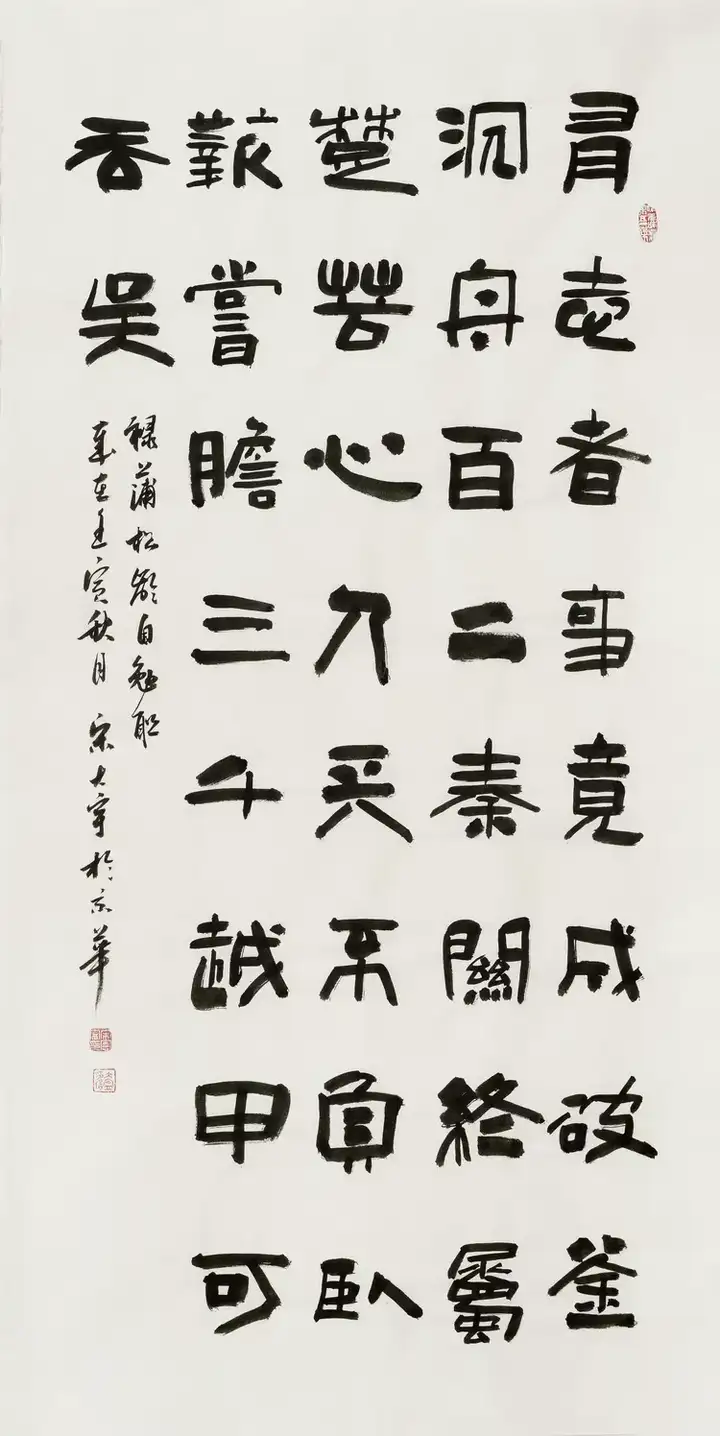 有志者事竟成破釜
沉舟百二秦關終屬
楚苦心人天不負臥
薪嘗膽三千越甲可
吞吳
録蒲松齡自勉联
歲在壬寅秋月 宋大宇於京華